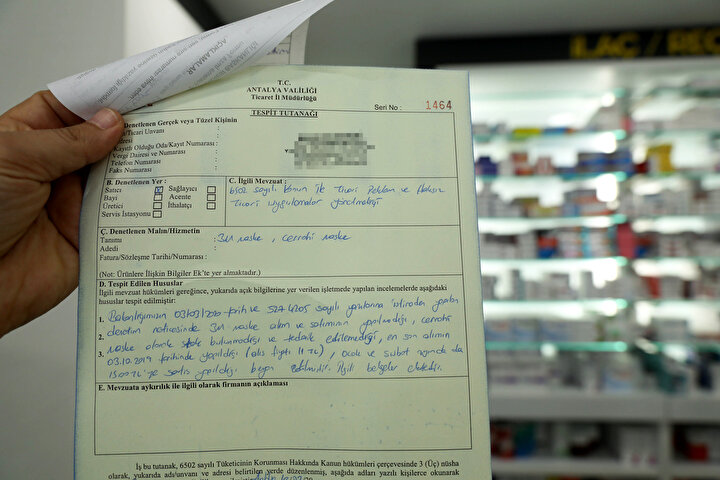 AÇIKLAMALAR
İLAÇ / REÇ
T.C.
ANTALYA VALİLİĞİ
Ticaret İl Müdürlüğü
Seri No : 1464
TESPİT TUTANAĞI
Denetlenen Gerçek veya Tüzel Kişinin
/Ticari Unvanı :
Adresi :
Kayıtlı Olduğu Oda/Kayıt Numarası :
Vergi Dairesi ve Numarası :
Telefon Numarası :
Faks Numarası :
B. Denetlenen Yer :
Satıcı Sağlayıcı
Bayi Acente
Üretici İthalatçı
Servis İstasyonu
C. İlgili Mevzuat :
6502 sayılı Kanun ile Ticari Reklam ve Haksız
Ticari Uygulamalar Yönetmeliği
Ç. Denetlenen Malın/Hizmetin
Tanımı : 3M maske, cerrahi maske
Adedi :
Fatura/Sözleşme Tarihi/Numarası :
(Not: Ürünlere İlişkin Bilgiler Ek'te yer almaktadır.)
D. Tespit Edilen Hususlar
İlgili mevzuat hükümleri gereğince, yukarıda açık bilgilerine yer verilen işletmede yapılan incelemelerde aşağıdaki
hususlar tespit edilmiştir:
1. Bakanlığımızın tarih ve sayılı yazılarına istinaden yapılan
2. denetim neticesinde 3M maske alım ve satımının yapılmadığı, cerrahi
3. maske olarak stok bulunmadığı ve tedarik edilemediği, en son alımın
03.10.2019 tarihinde yapıldığı (alış fiyatı 11 TL), ocak ve şubat ayında da
15.00 TL'ye satış yapıldığı beyan edilmiştir. İlgili belgeler ektedir.
E. Mevzuata aykırılık ile ilgili olarak firmanın açıklaması
İş bu tutanak, 6502 sayılı Tüketicinin Korunması Hakkında Kanun hükümleri çerçevesinde 3 (Üç) nüsha
olarak, yukarıda adı/unvanı ve adresi belirtilen yerde düzenlenmiş, aşağıda adları yazılı kişilerce okunarak